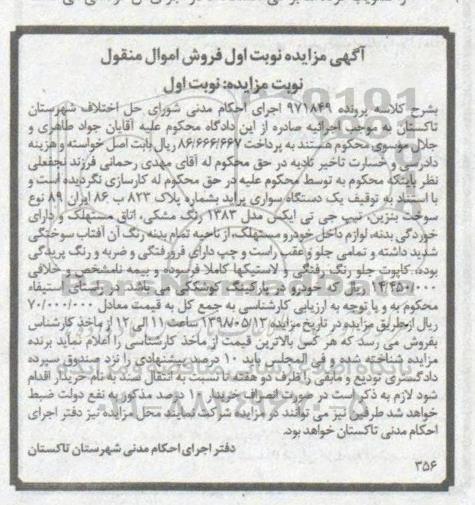 آگهی مزایده نوبت اول فروش اموال منقول
نوبت مزایده: نوبت اول
بشرح کلاسه پرونده ۹۷۱۸۴۹ اجرای احکام مدنی شورای حل اختلاف شهرستان
تاکستان به موجب اجرائیه صادره از این دادگاه محکوم علیه آقایان جواد طاهری و
جلال موسوی محکوم هستند به پرداخت ۸۶/۶۶۶/۶۶۷ ریال بابت اصل خواسته و هزینه
دادرسی و خسارت تاخیر تادیه در حق محکوم له آقای مهدی رحمانی فرزند نجفعلی
نظر باینکه محکوم به توسط محکوم علیه در حق محکوم له کارسازی نگردیده است و
با استناد به توقیف یک دستگاه سواری پراید بشماره پلاک ۸۲۳ ب ۸۶ ایران ۸۹ نوع
سوخت بنزین، تیپ جی تی ایکی مدل ۱۳۸۳ رنگ مشکی، اتاق مستهلک و دارای
خوردگی بدنه، لوازم داخل خودرو مستهلک، از ناحیه تمام بدنه رنگ آن آفتاب سوختگی
شدید داشته و تمامی جلو و عقب راست و چپ دارای فرورفتگی و ضربه و رنگ پریدگی
بوده، کاپوت جلو رنگ رفتگی و لاستیکها کاملا فرسوده و بیمه نامشخص و خلافی
۱۴/۴۵۰/۰۰۰ ریال که خودرو در پارکینگ کوشککی می باشد. در راستای استیفاء
محکوم به و با توجه به ارزیابی کارشناسی به جمع کل به قیمت معادل ۷۰/۰۰۰/۰۰۰
ریال از طریق مزایده در تاریخ مزایده ۱۳۹۸/۰۵/۱۳ ساعت ۱۱ الی ۱۲ از ماخذ کارشناس
بفروش می رسد که هر کس بالاترین قیمت از ماخذ کارشناسی را اعلام نماید برنده
مزایده شناخته شده و فی المجلس باید ۱۰ درصد پیشنهادی را نزد صندوق سپرده
دادگستری تودیع و مابقی را ظرف دو هفته نسبت به انتقال سند به نام خریدار اقدام
شود لازم به ذکر است در صورت انصراف خریدار ۱۰ درصد مذکور به نفع دولت ضبط
خواهد شد طرفین نیز می توانند در مزایده شرکت نمایند محل مزایده نیز دفتر اجرای
احکام مدنی تاکستان خواهد بود.
دفتر اجرای احکام مدنی شهرستان تاکستان
۳۵۶